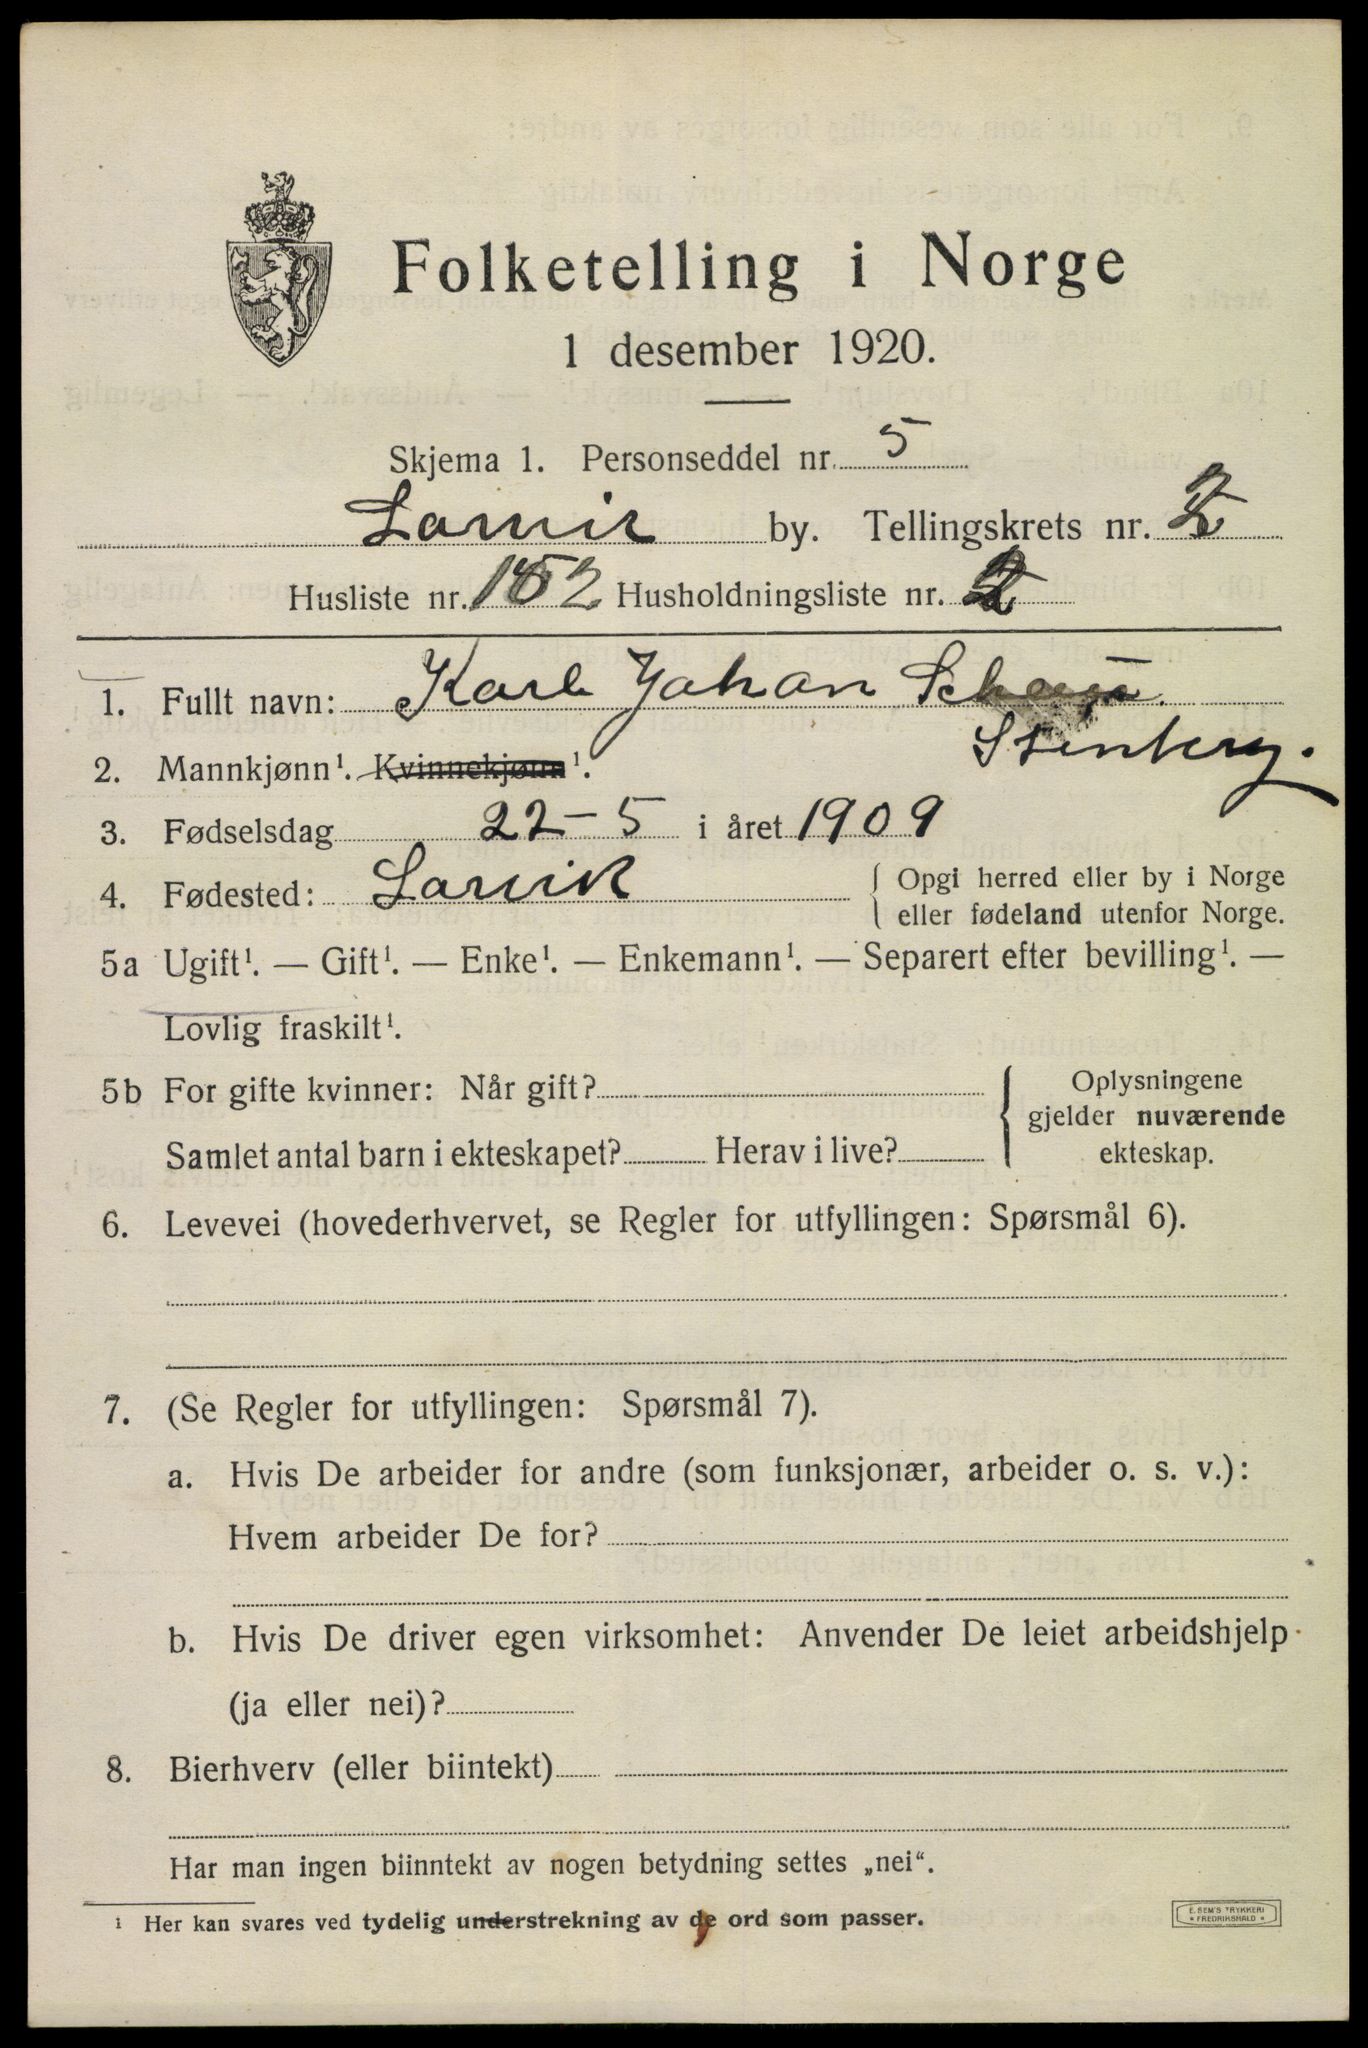 Folketelling i Norge
1 desember 1920.
Skjema 1. Personseddel nr. 5
Larvik by. Tellingskrets nr. 2
Husliste nr. 152 Husholdningsliste nr. 2
1. Fullt navn: Karl Johan
Stenberg.
2. Mannkjønn¹. Kvinnekjønn¹.
3. Fødselsdag 22-5 i året 1909
4. Fødested: Larvik { Opgi herred eller by i Norge
eller fødeland utenfor Norge.
5a Ugift¹. — Gift¹. — Enke¹. — Enkemann¹. — Separert efter bevilling¹. —
Lovlig fraskilt¹.
5b For gifte kvinner: Når gift? { Oplysningene
gjelder nuværende
Samlet antal barn i ekteskapet? Herav i live? ekteskap.
6. Levevei (hovederhvervet, se Regler for utfyllingen: Spørsmål 6).
7. (Se Regler for utfyllingen: Spørsmål 7).
a. Hvis De arbeider for andre (som funksjonær, arbeider o. s. v.):
Hvem arbeider De for?
b. Hvis De driver egen virksomhet: Anvender De leiet arbeidshjelp
(ja eller nei)?
8. Bierhverv (eller biintekt)
Har man ingen biinntekt av nogen betydning settes „nei“.
¹ Her kan svares ved tydelig understrekning av de ord som passer.
E. SEM'S TRYKKERI
* FREDRIKSHALD *